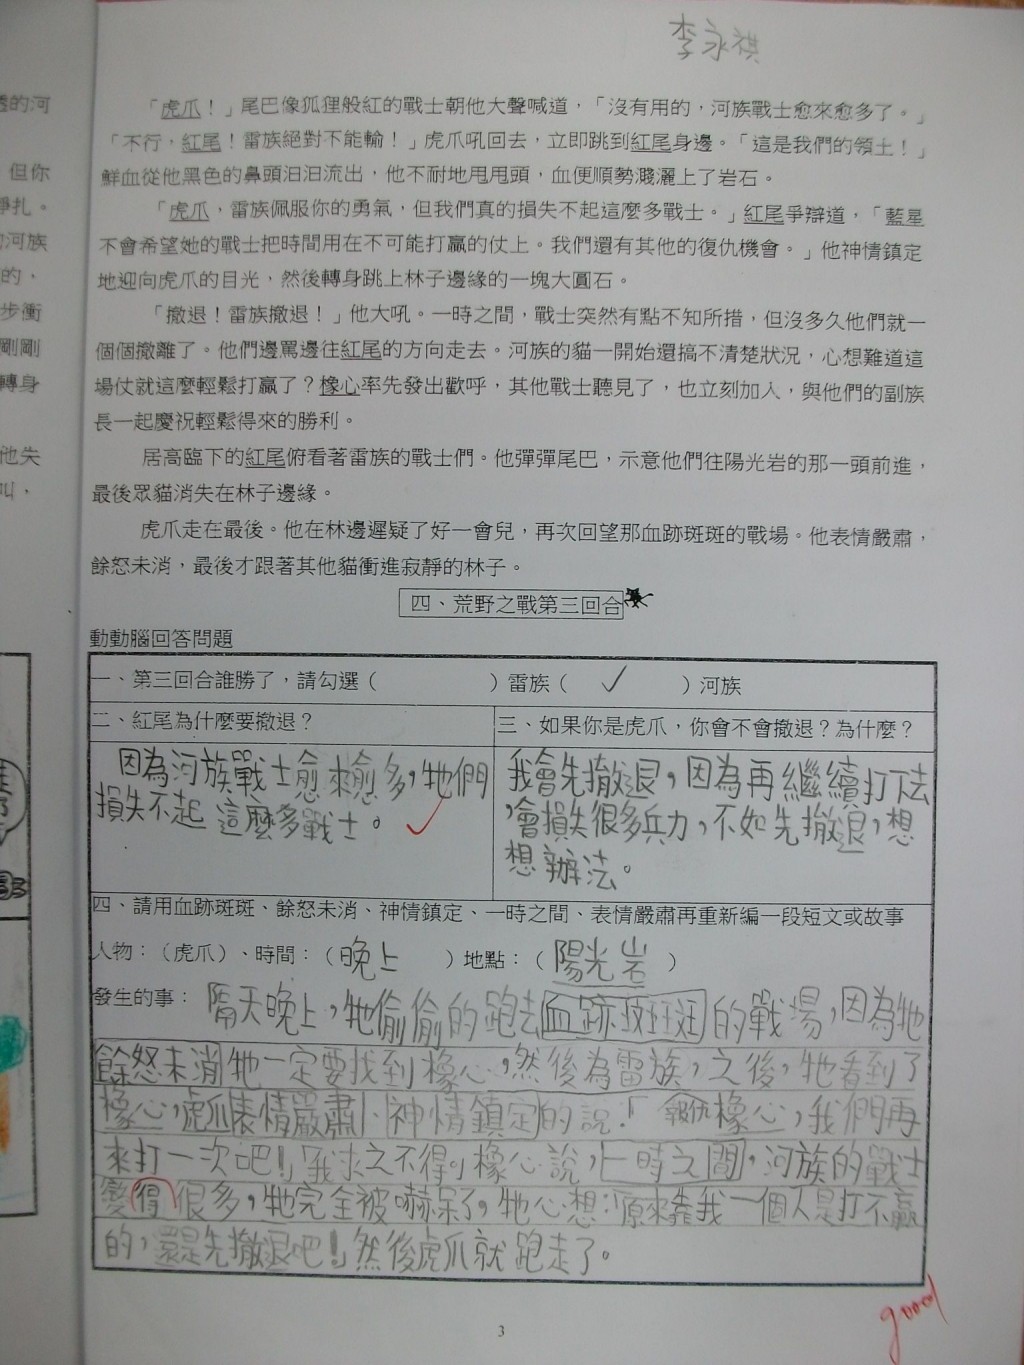 李永祺
「虎爪！」尾巴像狐狸般紅的戰士朝他大聲喊道，「沒有用的，河族戰士愈來愈多了。」
「不行，紅尾！雷族絕對不能輸！」虎爪吼回去，立即跳到紅尾身邊。「這是我們的領土！」
鮮血從他黑色的鼻頭汩汩流出，他不耐地甩甩頭，血便順勢濺灑上了岩石。
「虎爪，雷族佩服你的勇氣，但我們真的損失不起這麼多戰士。」紅尾爭辯道，「藍星
不會希望她的戰士把時間用在不可能打贏的仗上。我們還有其他的復仇機會。」他神情鎮定
地迎向虎爪的目光，然後轉身跳上林子邊緣的一塊大圓石。
「撤退！雷族撤退！」他大吼。一時之間，戰士突然有點不知所措，但沒多久他們就一
個個撤離了。他們邊罵邊往紅尾的方向走去。河族的貓一開始還搞不清楚狀況，心想難道這
場仗就這麼輕鬆打贏了？橡心率先發出歡呼，其他戰士聽見了，也立刻加入，與他們的副族
長一起慶祝輕鬆得來的勝利。
居高臨下的紅尾俯看著雷族的戰士們。他彈彈尾巴，示意他們往陽光岩的那一頭前進，
最後眾貓消失在林子邊緣。
虎爪走在最後。他在林邊遲疑了好一會兒，再次回望那血跡斑斑的戰場。他表情嚴肅，
餘怒未消，最後才跟著其他貓衝進寂靜的林子。
四、荒野之戰第三回合
動動腦回答問題
一、第三回合誰勝了，請勾選（ ）雷族（ ✓ ）河族
二、紅尾為什麼要撤退？
因為河族戰士愈來愈多，牠們
損失不起這麼多戰士。
三、如果你是虎爪，你會不會撤退？為什麼？
我會先撤退，因為再繼續打下去
，會損失很多兵力，不如先撤退，想
想辦法。
四、請用血跡斑斑、餘怒未消、神情鎮定、一時之間、表情嚴肅再重新編一段短文或故事
人物：（虎爪）、時間：（晚上）地點：（陽光岩）
發生的事：隔天晚上，牠偷偷的跑去血跡斑斑的戰場，因為牠
餘怒未消牠一定要找到橡心，然後為雷族，之後，牠看到了
橡心，虎爪表情嚴肅、神情鎮定的說：「報仇橡心，我們再
來打一次吧！」「我求之不得」橡心說，一時之間，河族的戰士
變得很多，牠完全被嚇呆了。牠心想：「原來靠我一個人是打不贏
的，還是先撤退吧！」然後虎爪就跑走了。
good
3
透的河
但你
掙扎。
河族
的、
步衝
剛剛
轉身
他失
叫、